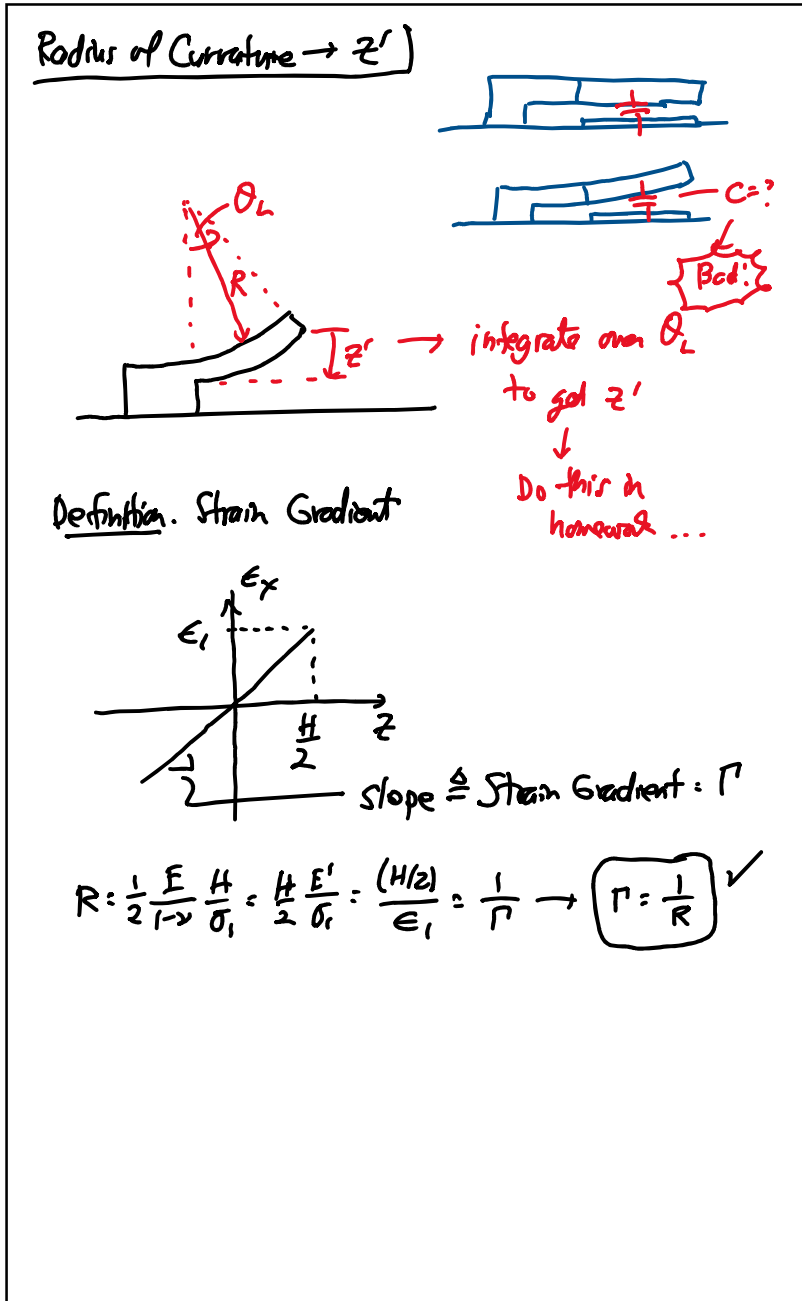 Radius of Curvature → z'
θ_L
R
C=?
Bad!
z' → integrate over θ_L
to get z'
↓
Do this in
homework ...
Definition. Strain Gradient
ε_x
ε_1
H/2
z
slope ≜ Strain Gradient = Γ
R = 1/2 E/(1-ν) H/σ_1 = H/2 E'/σ_1 = (H/2)/ε_1 = 1/Γ → Γ = 1/R ✓